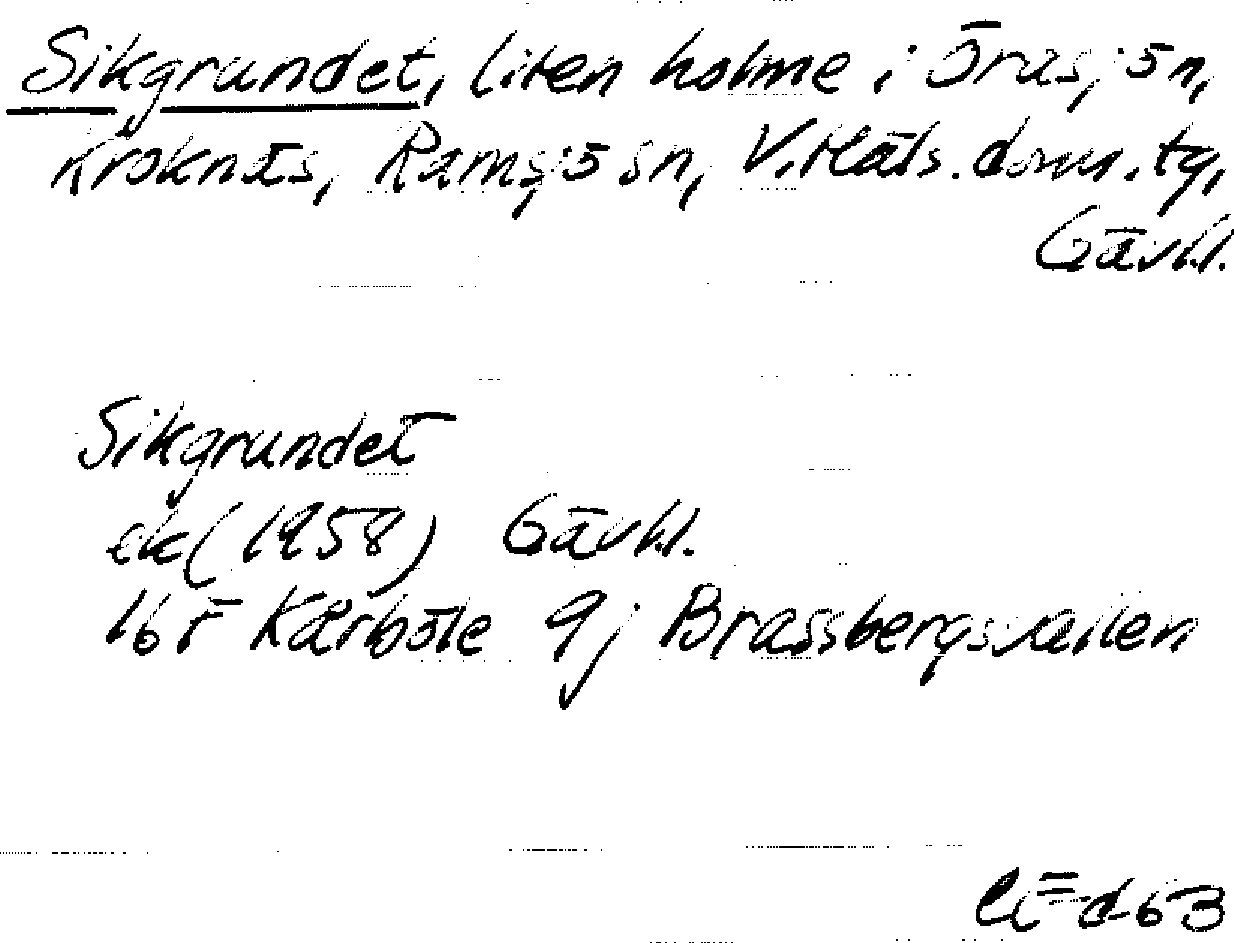 Sikgrundet, liten holme i Örasjön,
Kroknäs, Ramsjö sn, V. Häls. doms. tg,
Gävl.l.
Sikgrundet
ek (1958) Gävl.l.
16 F Kårböle 9j Brassbergsvallen